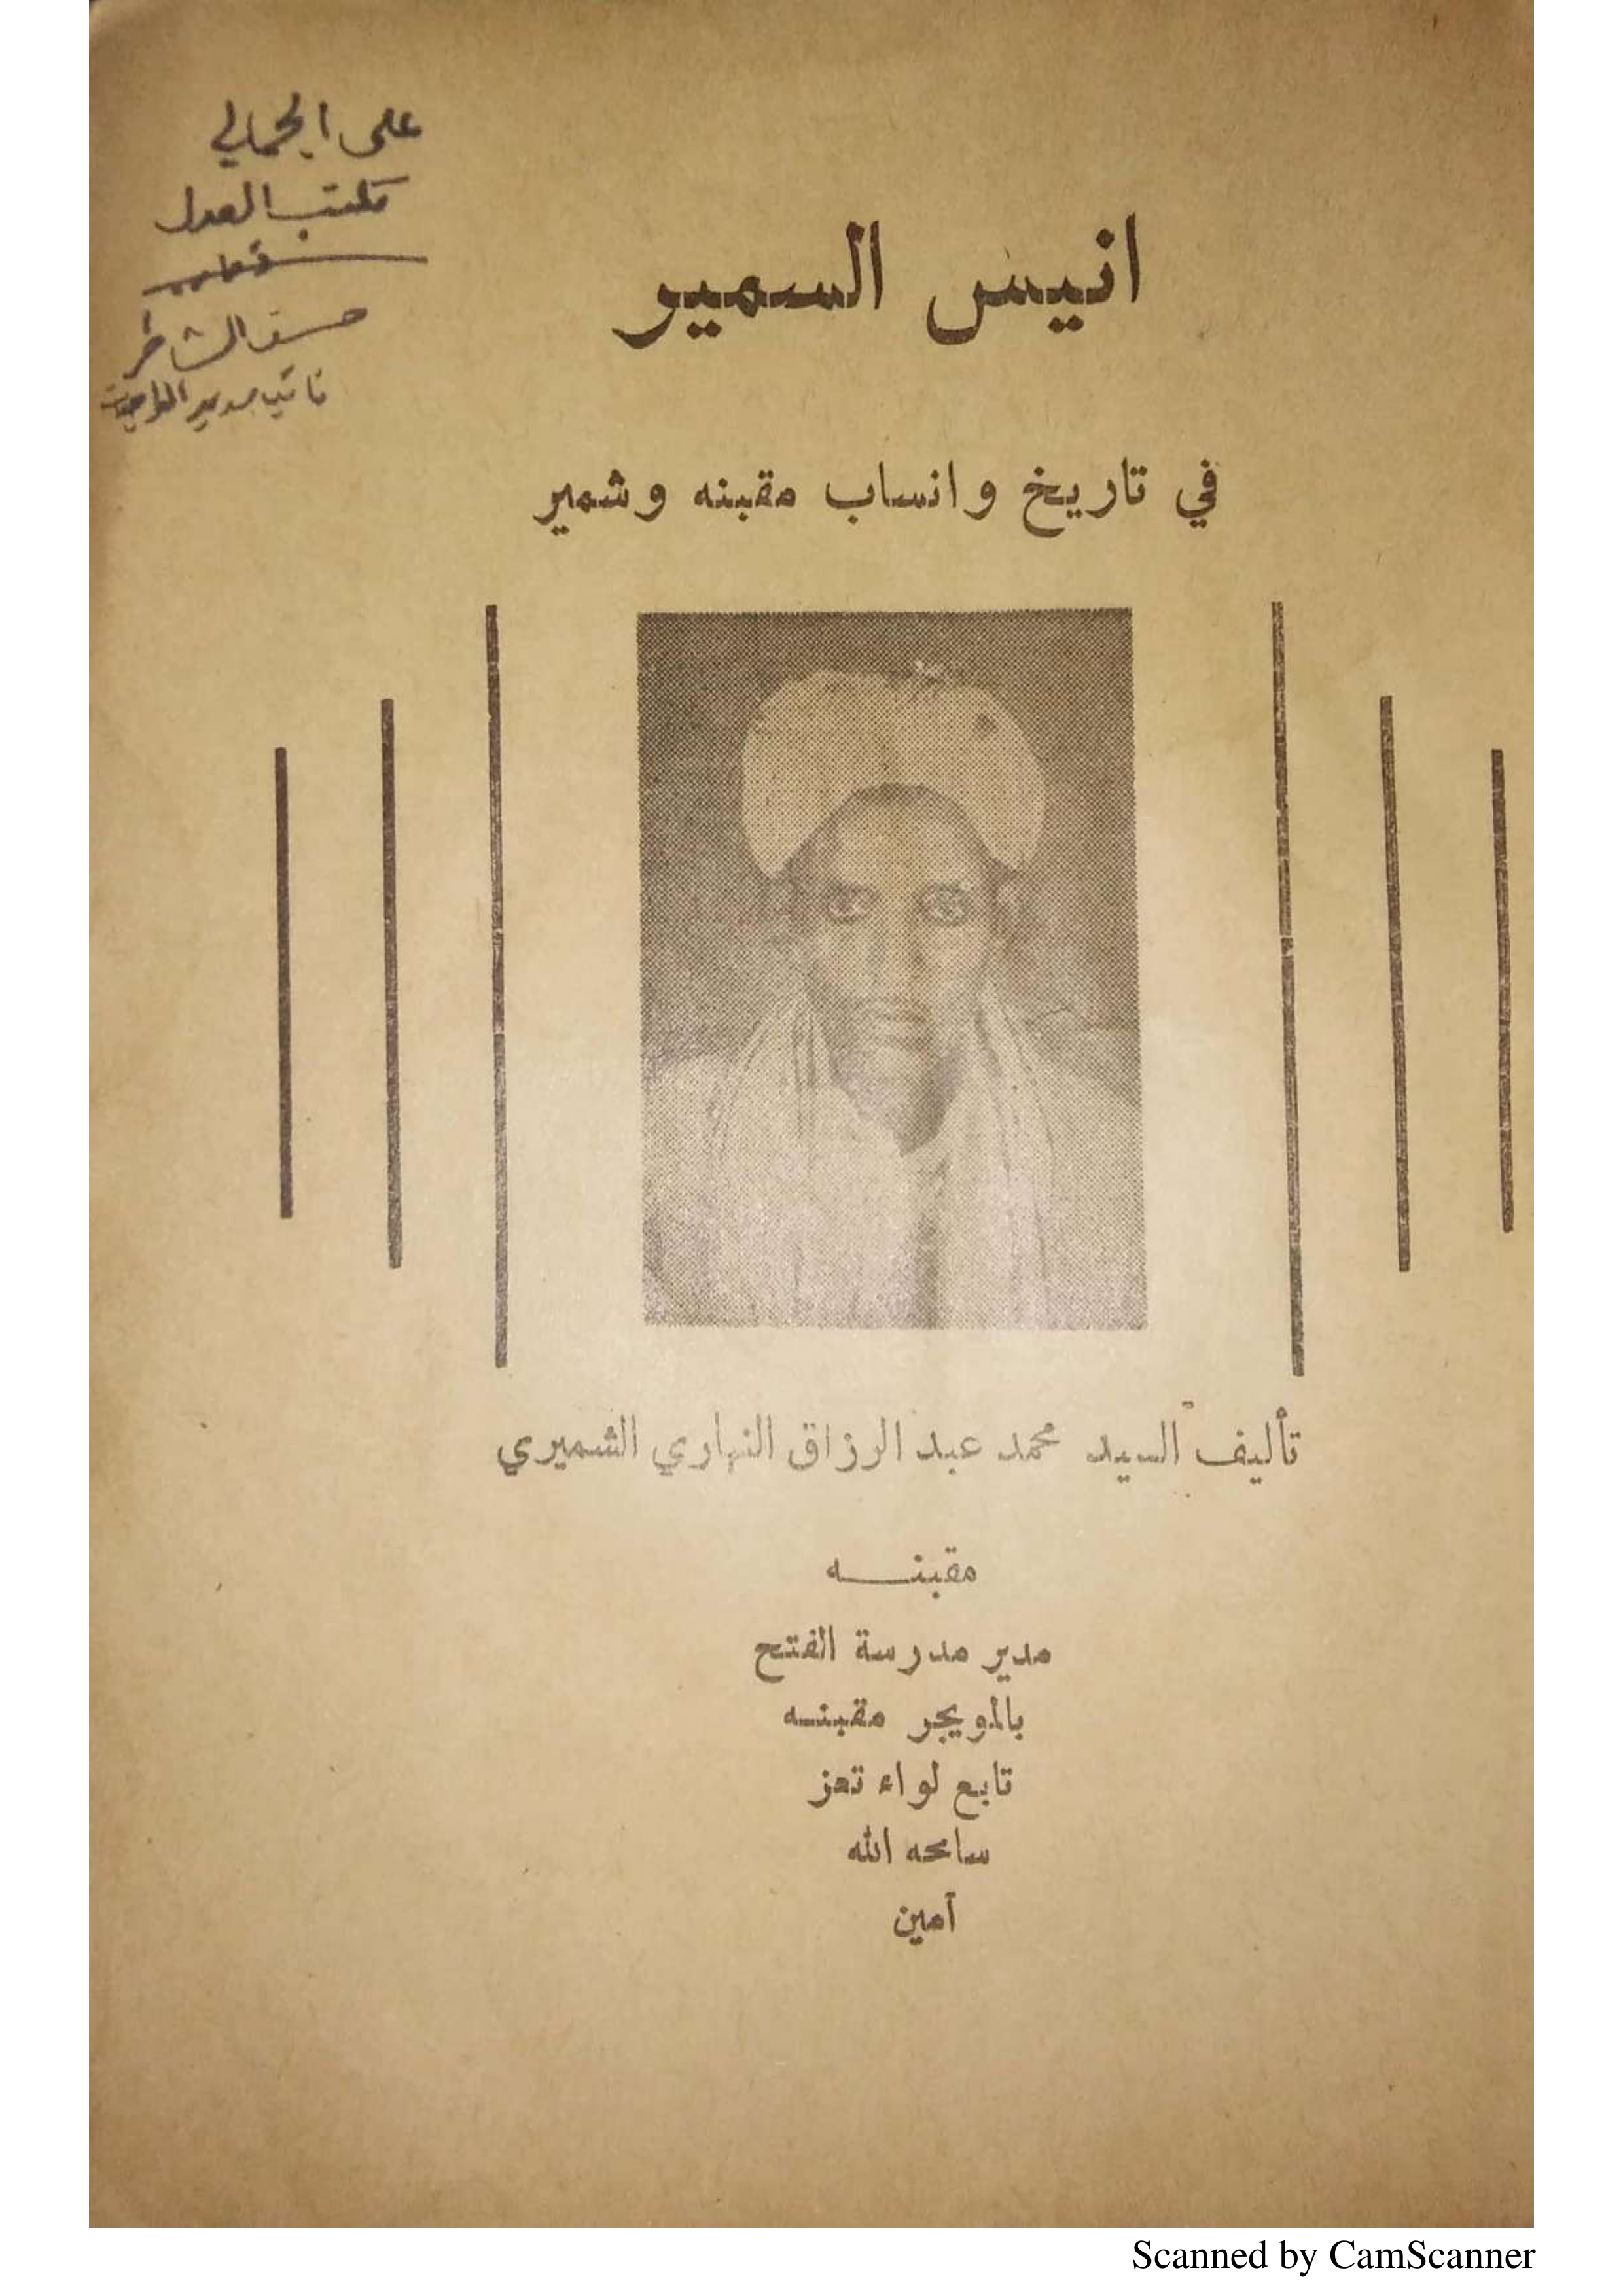 على الجمالي
مكتب العدل
حسن الشاطر
نائب مدير
انيس السمير
في تاريخ وانساب مقبنه وشمير
تأليف السيد محمد عبد الرزاق النهاري الشميري
مقبنــه
مدير مدرسة الفتح
بالمويجر مقبنــه
تابع لواء تعز
سامحه الله
آمين
Scanned by CamScanner